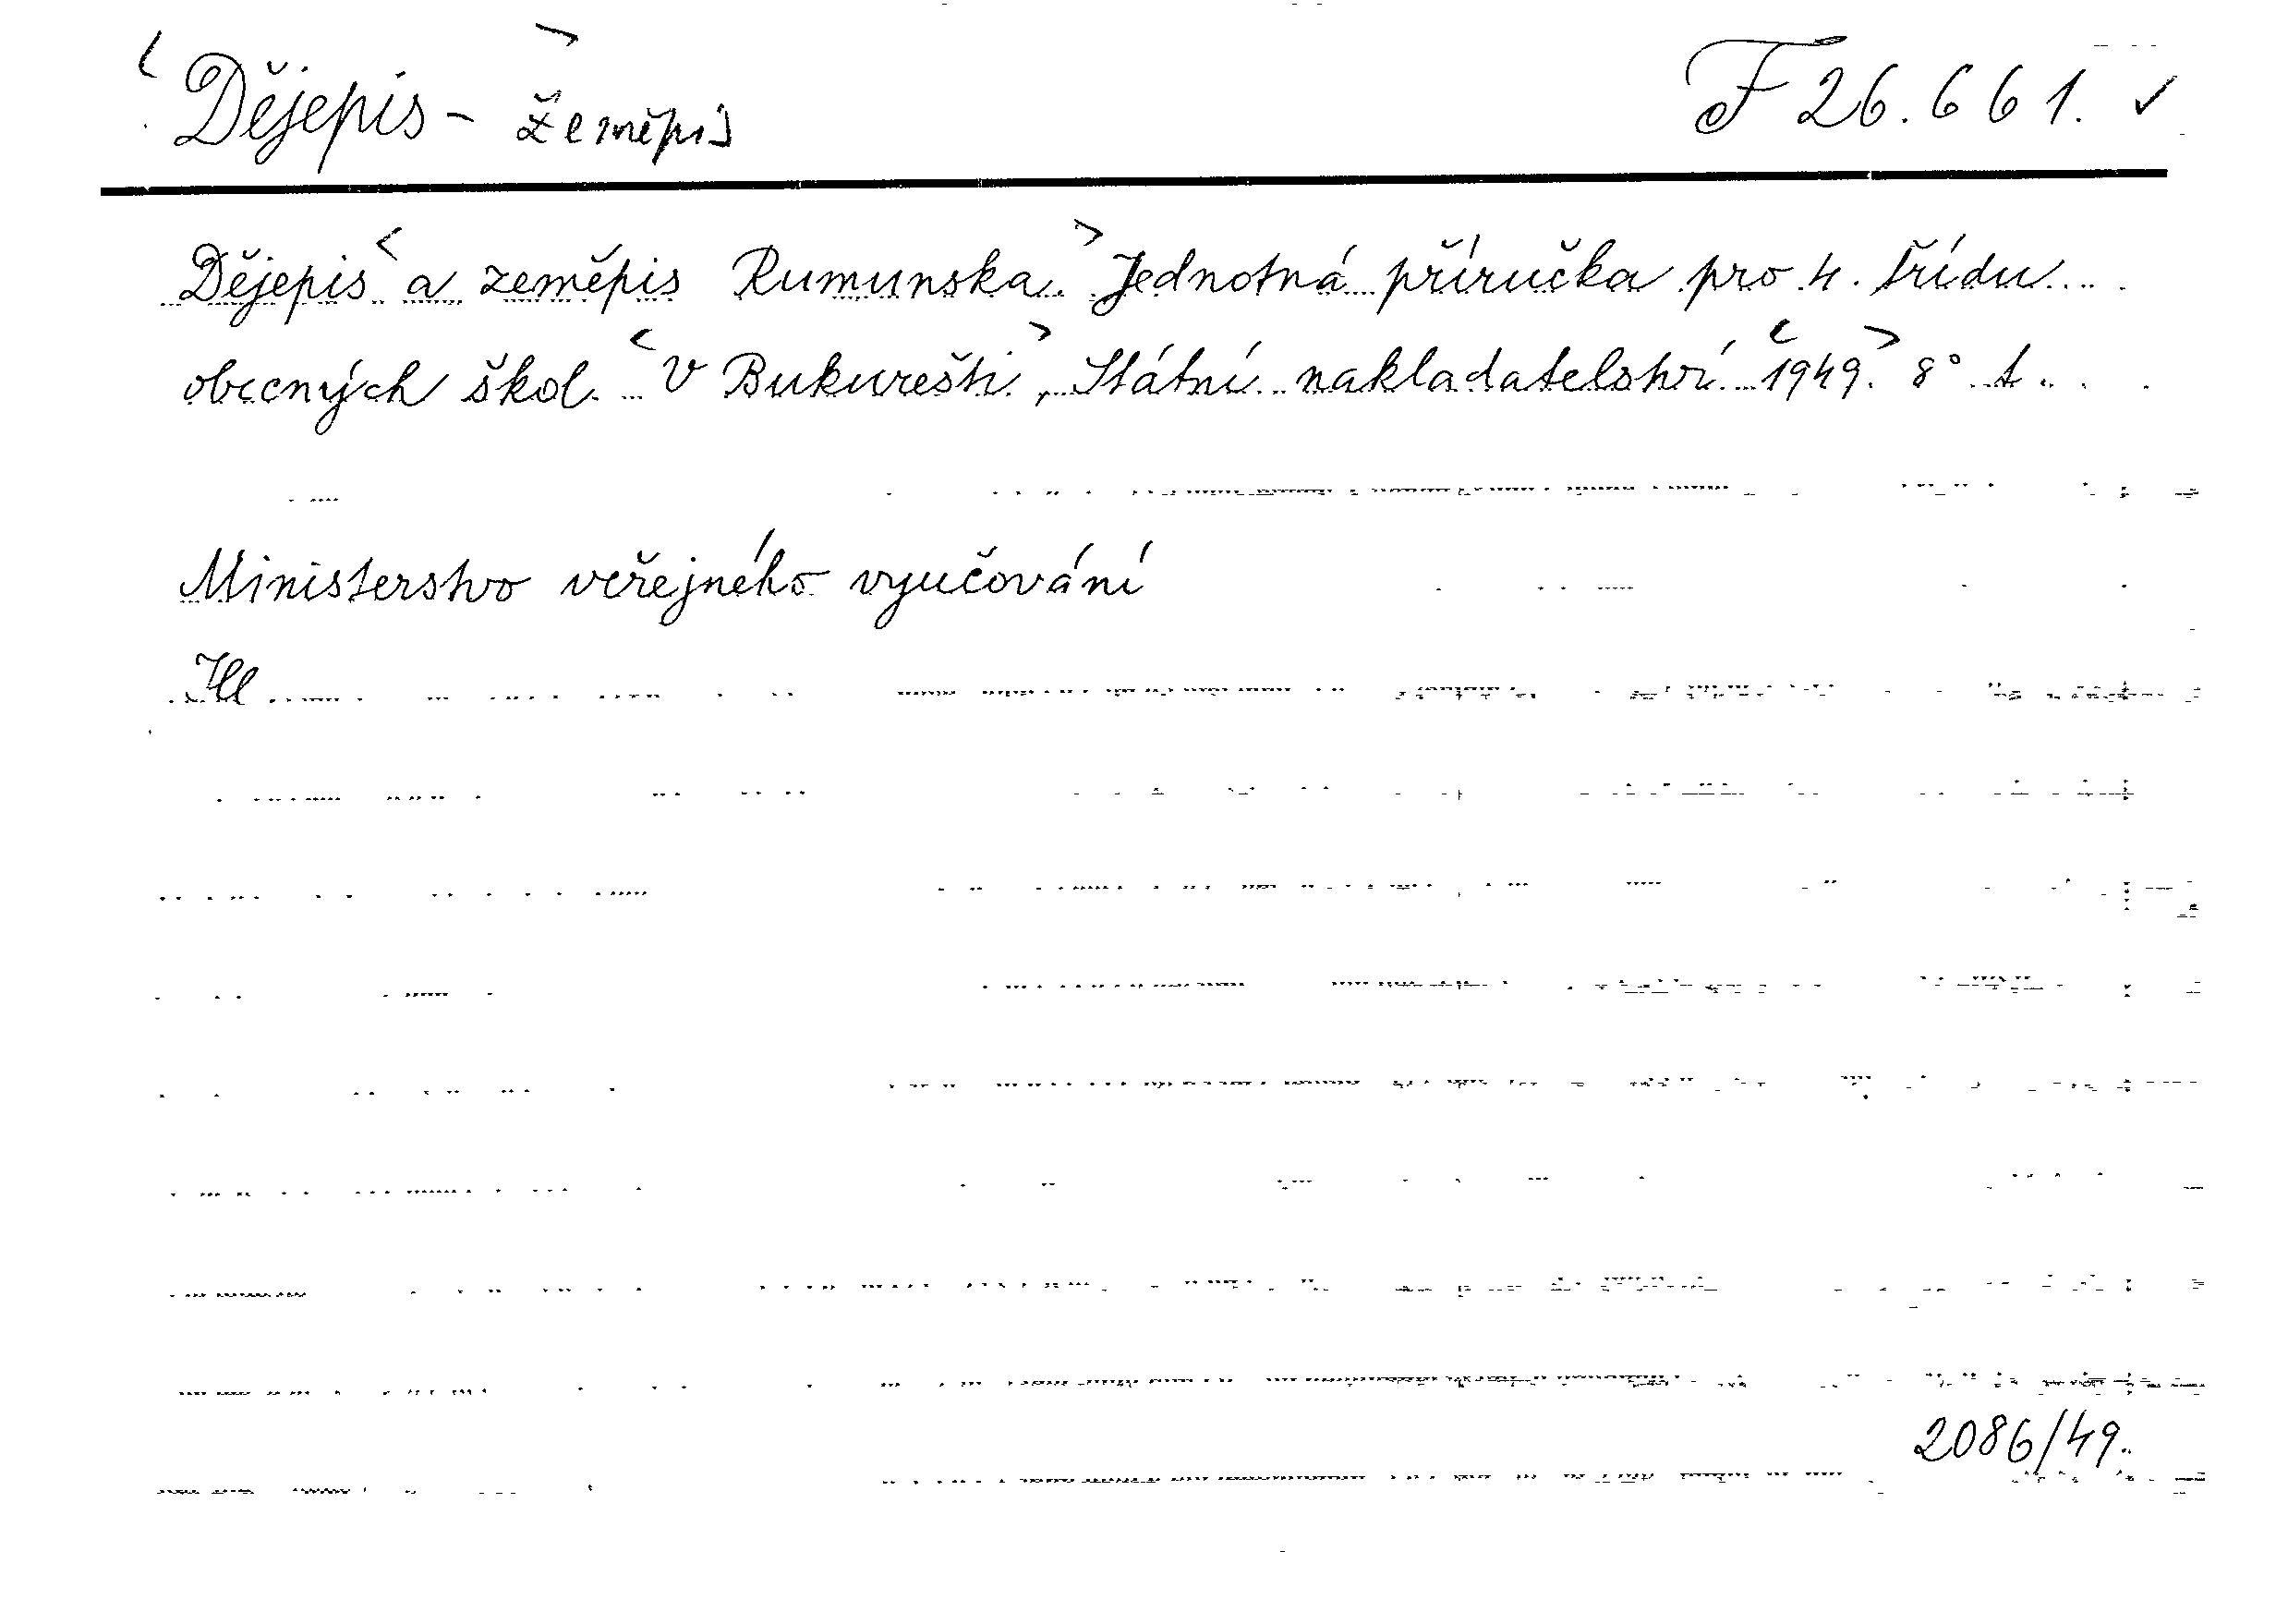 <Dějepis - zeměpis> F 26.661. ✓
Dějepis <a zeměpis Rumunska.> Jednotná příručka pro 4. třídu
obecných škol. <V Bukurešti>, Státní nakladatelství <1949.> 8° 1.
Ministerstvo veřejného vyučování
Ill
2086/49.